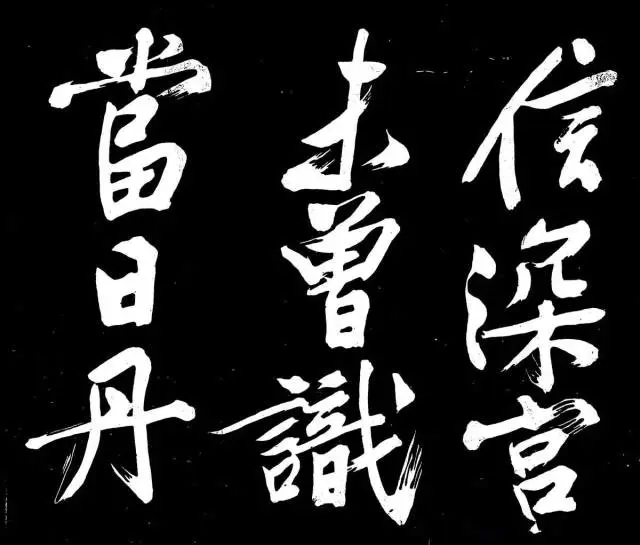 信深宮
未曾識
當日丹